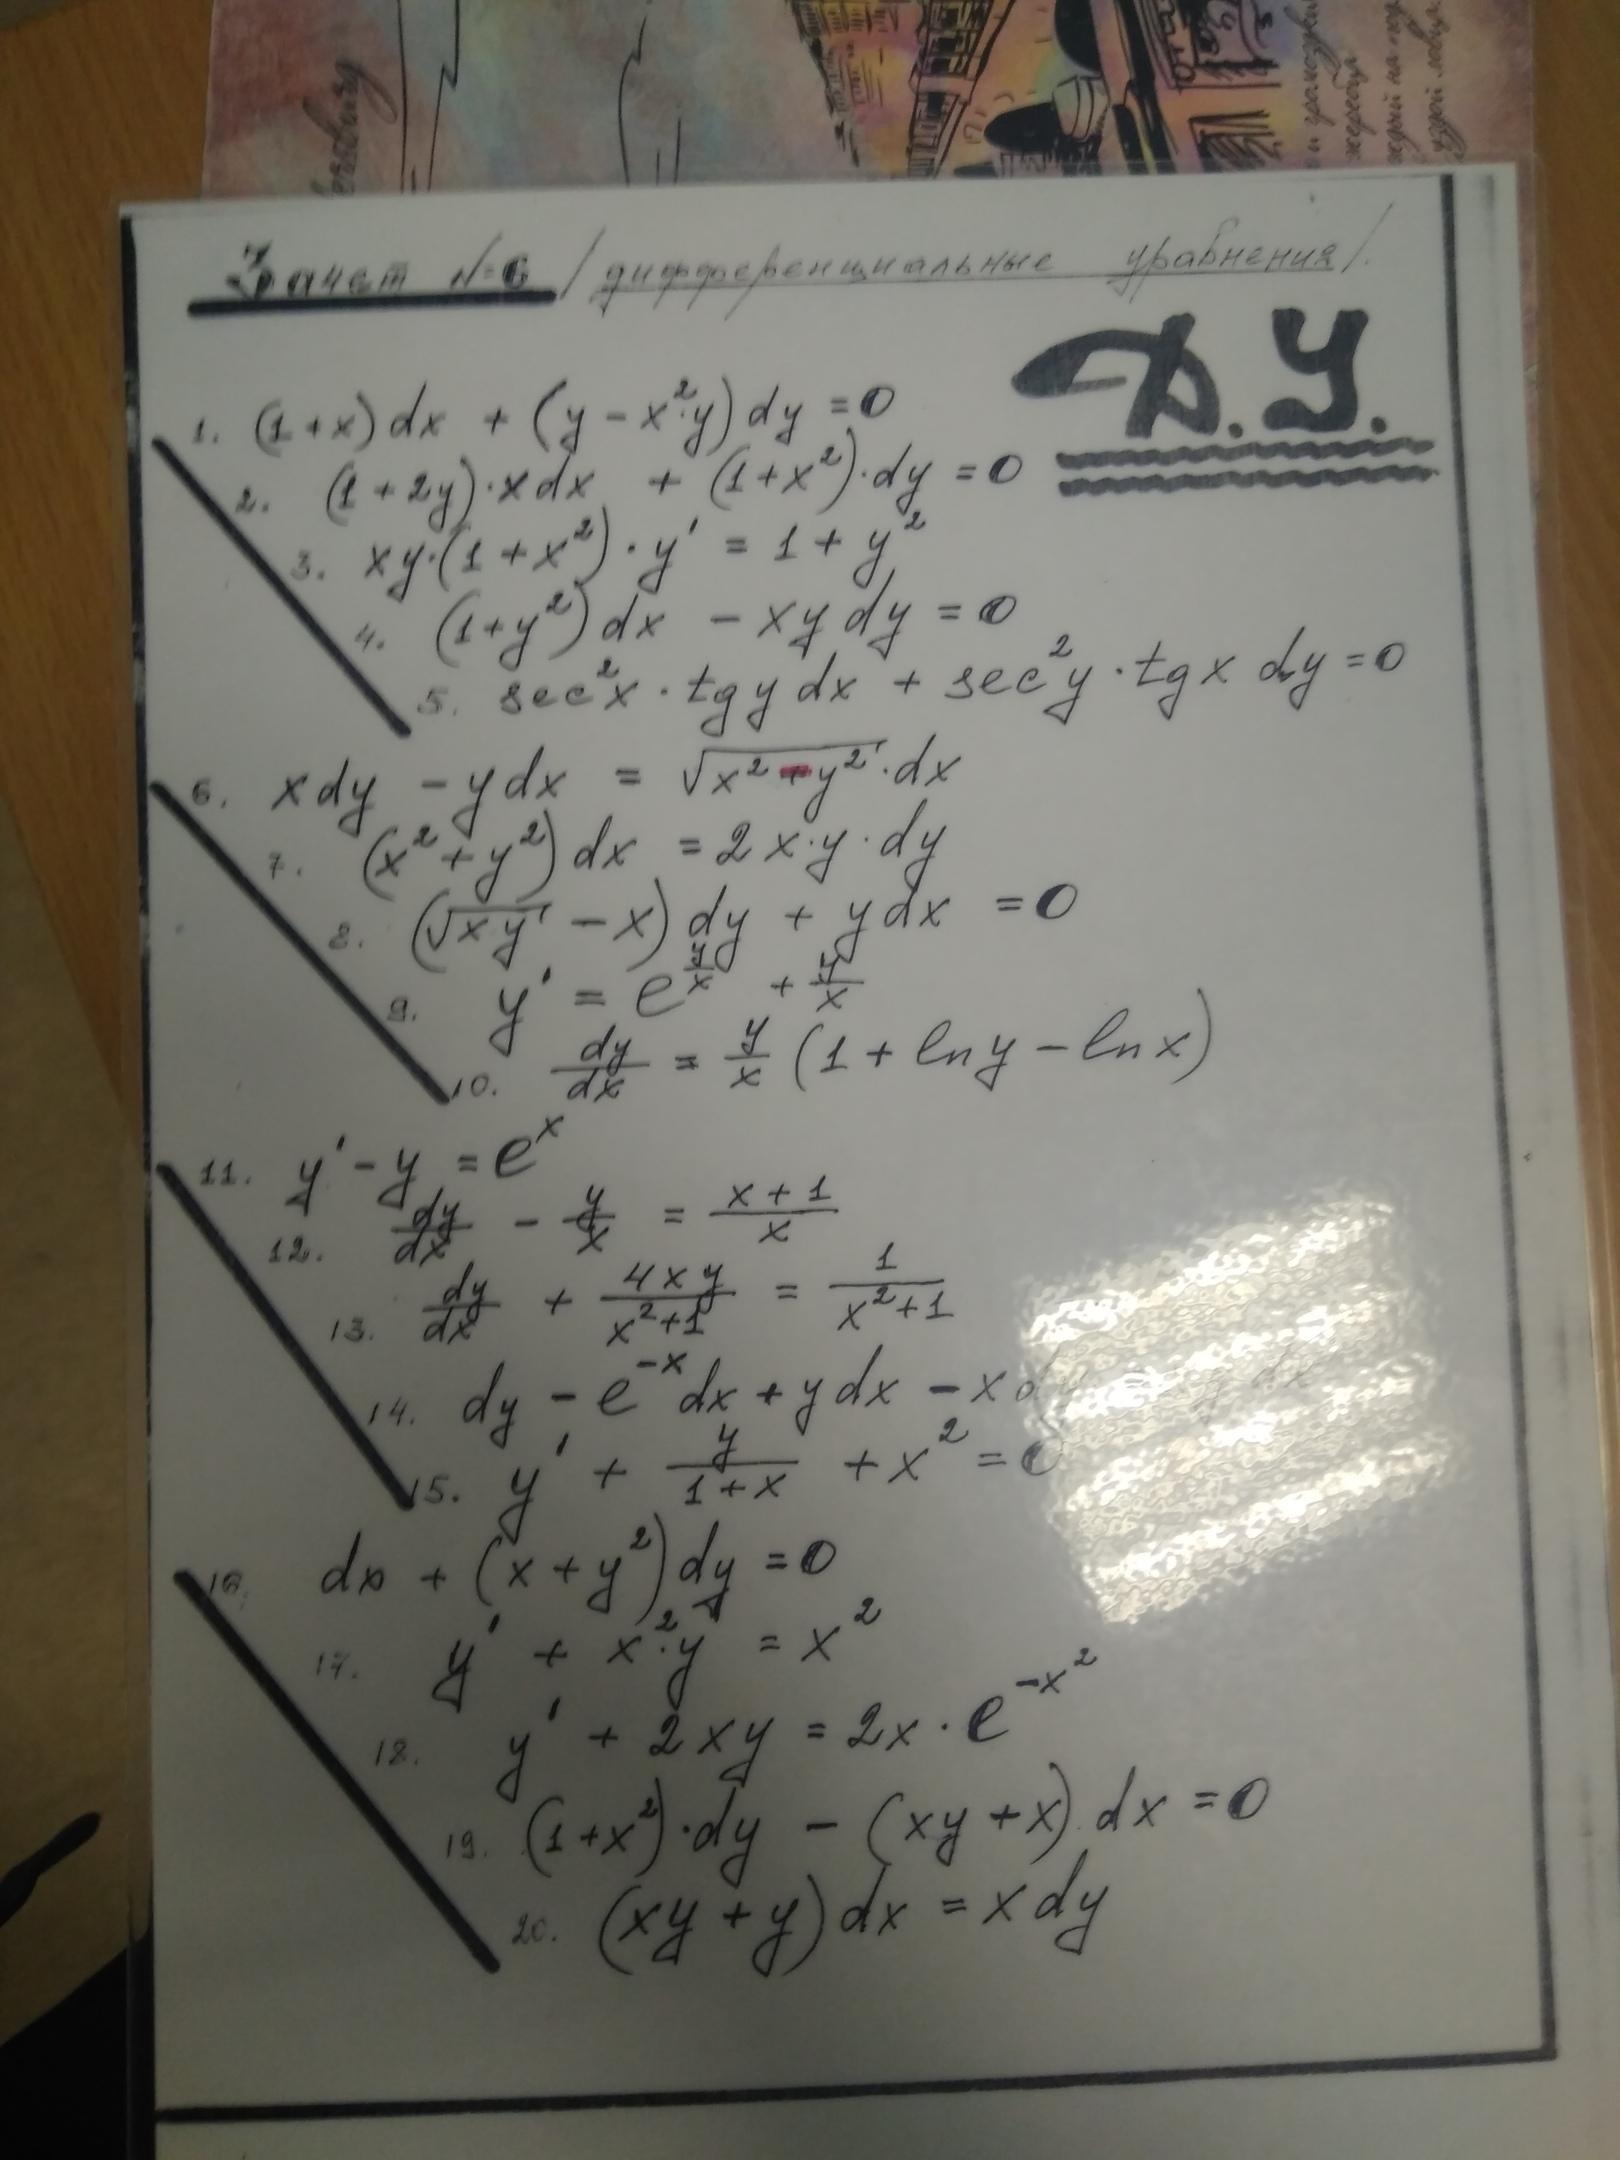 Зачет №6 /дифференциальные уравнения/.
Д.У.
1. (1+x)dx + (y-x²·y)dy =0
2. (1+2y)·xdx + (1+x²)·dy =0
3. xy·(1+x²)·y' = 1+y²
4. (1+y²)dx - xydy =0
5. sec²x·tgydx + sec²y·tgxdy=0
6. xdy - ydx = √(x²-y²)·dx
7. (x²+y²)dx = 2x·y·dy
8. (√(xy) - x)dy + ydx =0
9. y' = e^(y/x) + y/x
10. dy/dx = y/x (1+lny-lnx)
11. y'-y = e^x
12. dy/dx - y/x = (x+1)/x
13. dy/dx + 4xy/(x²+1) = 1/(x²+1)
14. dy - e^(-x)dx + ydx - xd
15. y' + y/(1+x) + x² =0
16. dx + (x+y²)dy =0
17. y' + x²·y = x²
18. y' + 2xy = 2x·e^(-x²)
19. (1+x²)·dy - (xy+x).dx =0
20. (xy+y)dx = xdy